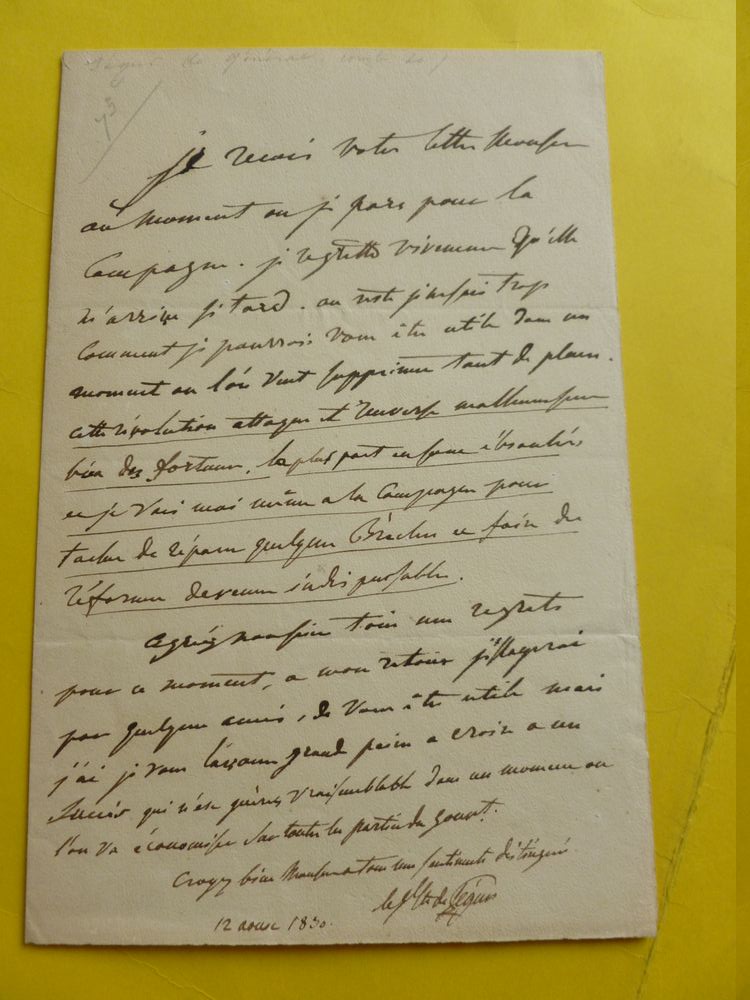 Ségur le général, comte de
75
je recois votre lettre Monsieur
au moment ou je pars pour la
Campagne. je regrette vivement qu'elle
n'arrive si tard. au reste je ne sais trop
comment je pourrois vous être utile dans un
moment ou l'on veut supprimer tant de places.
cette révolution attaque et renverse malheureuse
bien des fortunes. la plus part en sont ébranlées
et je vais moi même a la Campagne pour
tacher de réparer quelques Brèches et faire des
réformes devenues indispensables.
agréez Monsieur tous mes regrets
pour ce moment, a mon retour j'essayerai
par quelques amis, de vous être utile mais
j'ai je vous l'avoue grand peine a croire a un
succès qui n'est guères vraisemblable dans un moment ou
l'on va économiser sur toutes les parties du gouvt.
Croyez bien Monsieur a tous mes sentiments distingués.
le Gl Cte de Ségur
12 aoust 1830.